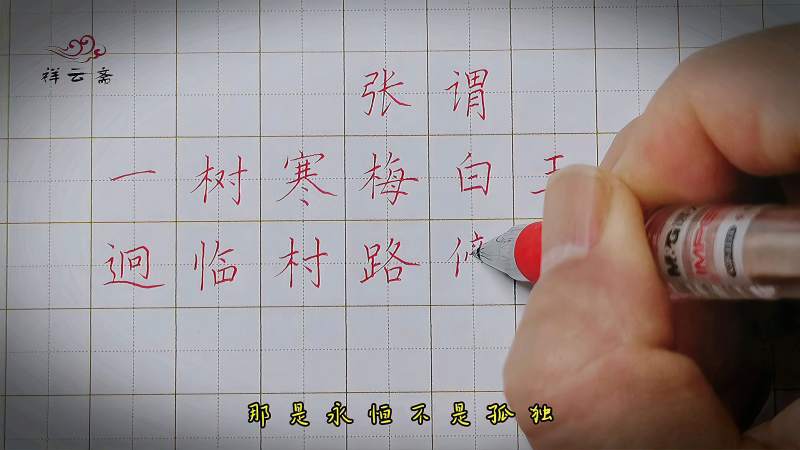 祥云斋
张谓
一树寒梅白玉
迥临村路
那是永恒不是孤独
M&G